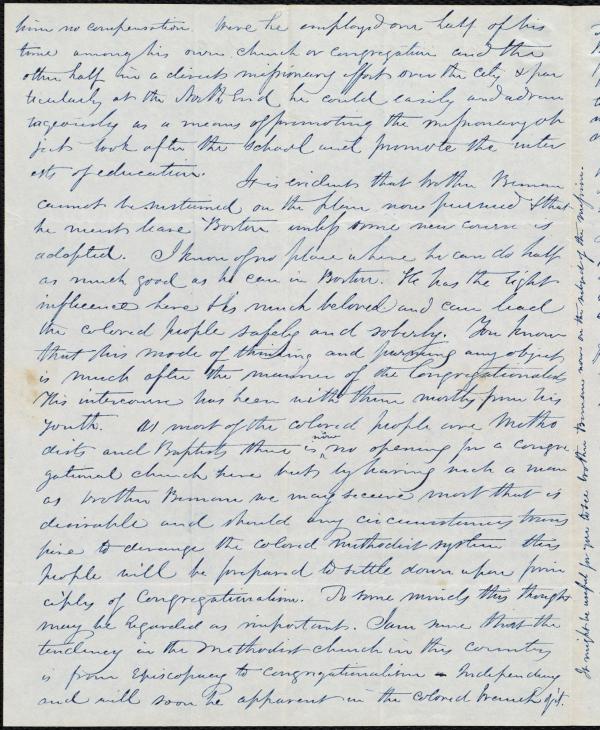 him no compensation. Were he employed one half of his
time among his own church or congregation and the
other half in a direct missionary effort over the city & par
ticularly at the North End he could easily and advan
tageously as a means of promoting the missionary ob
ject look after the school and promote the inter
ests of education. It is evident that brother Beman
cannot be sustained on the plan now pursued & that
he must leave Boston unless some new course is
adopted. I know of no place where he can do half
as much good as he can in Boston. He has the right
influence here & is much beloved and can lead
the colored people safely and soberly. You know
that his mode of thinking and pursuing any object
is much after the manner of the Congregationalists
His intercourse has been with them mostly from his
youth. As most of the colored people are Metho
dists and Baptists there is now no opening for a congre
gational church here but by having such a man
as brother Beman we may secure most that is
desirable and should any circumstances trans
pire to derange the colored Methodist system this
people will be prepared to settle down upon prin
ciples of Congregationalism. To some minds this thought
may be regarded as important. I am sure that the
tendency in the Methodist church in this country
is from Episcopacy to Congregationalism - Independency
and will soon be apparent in the colored branch of it.
It might be useful for you to see brother Beman now on the subject of the mission.